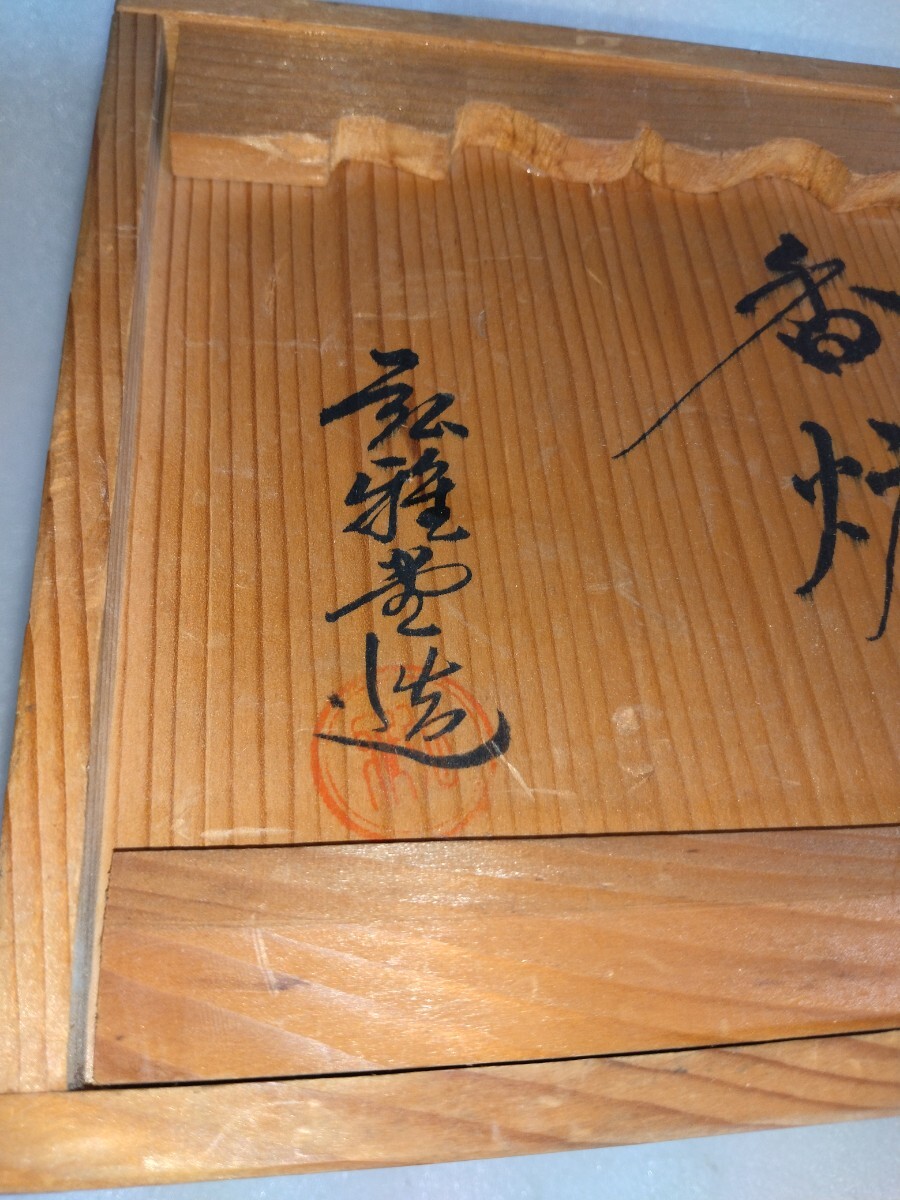 香炉
弘雅堂造